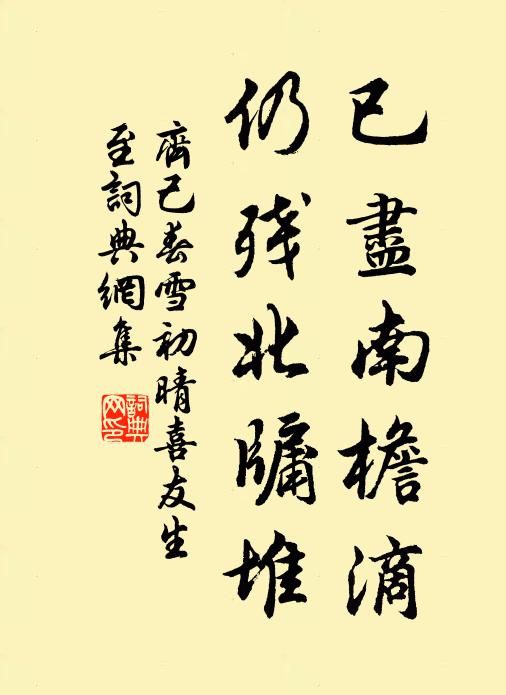 已盡南檐滴
仍残北牖堆
齊己春雪初晴喜友生
至詞典網集
詞典
网印